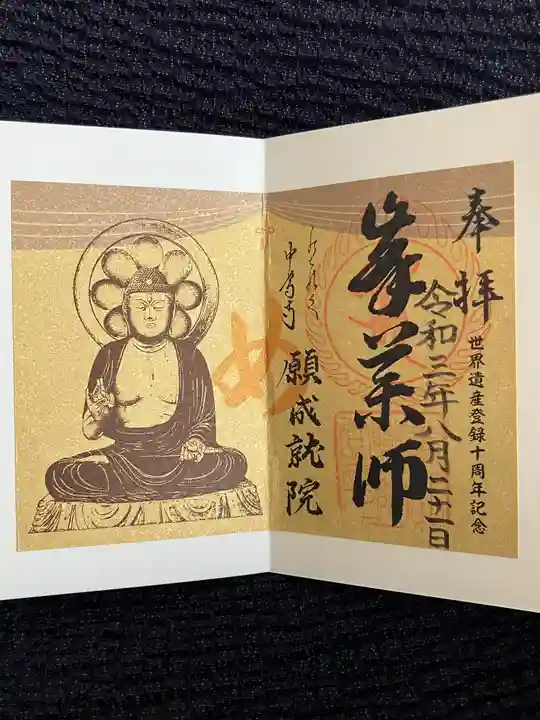 奉拝
世界遺産登録十周年記念
令和三年八月二十一日
峯薬師
中尊寺 願成就院
め